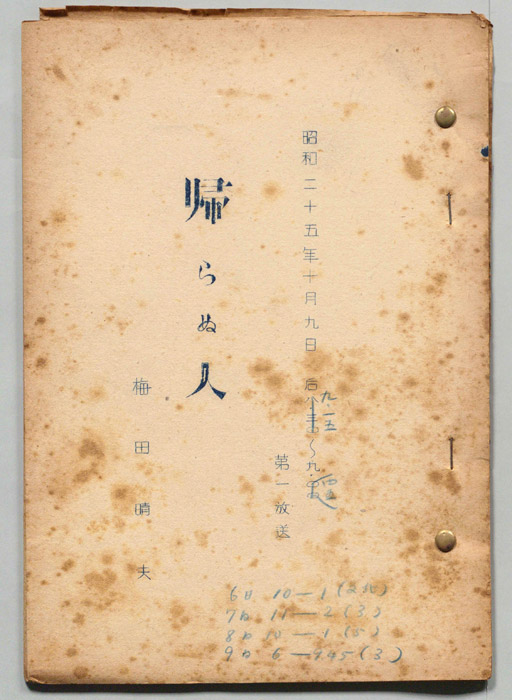 昭和二十五年十月九日 后 九・一五 〜九・四五
第一放送
帰らぬ人
梅田晴夫
6日 10―1 (2スタ)
7日 11―2 (3)
8日 10―1 (5)
9日 6―9.45 (3)